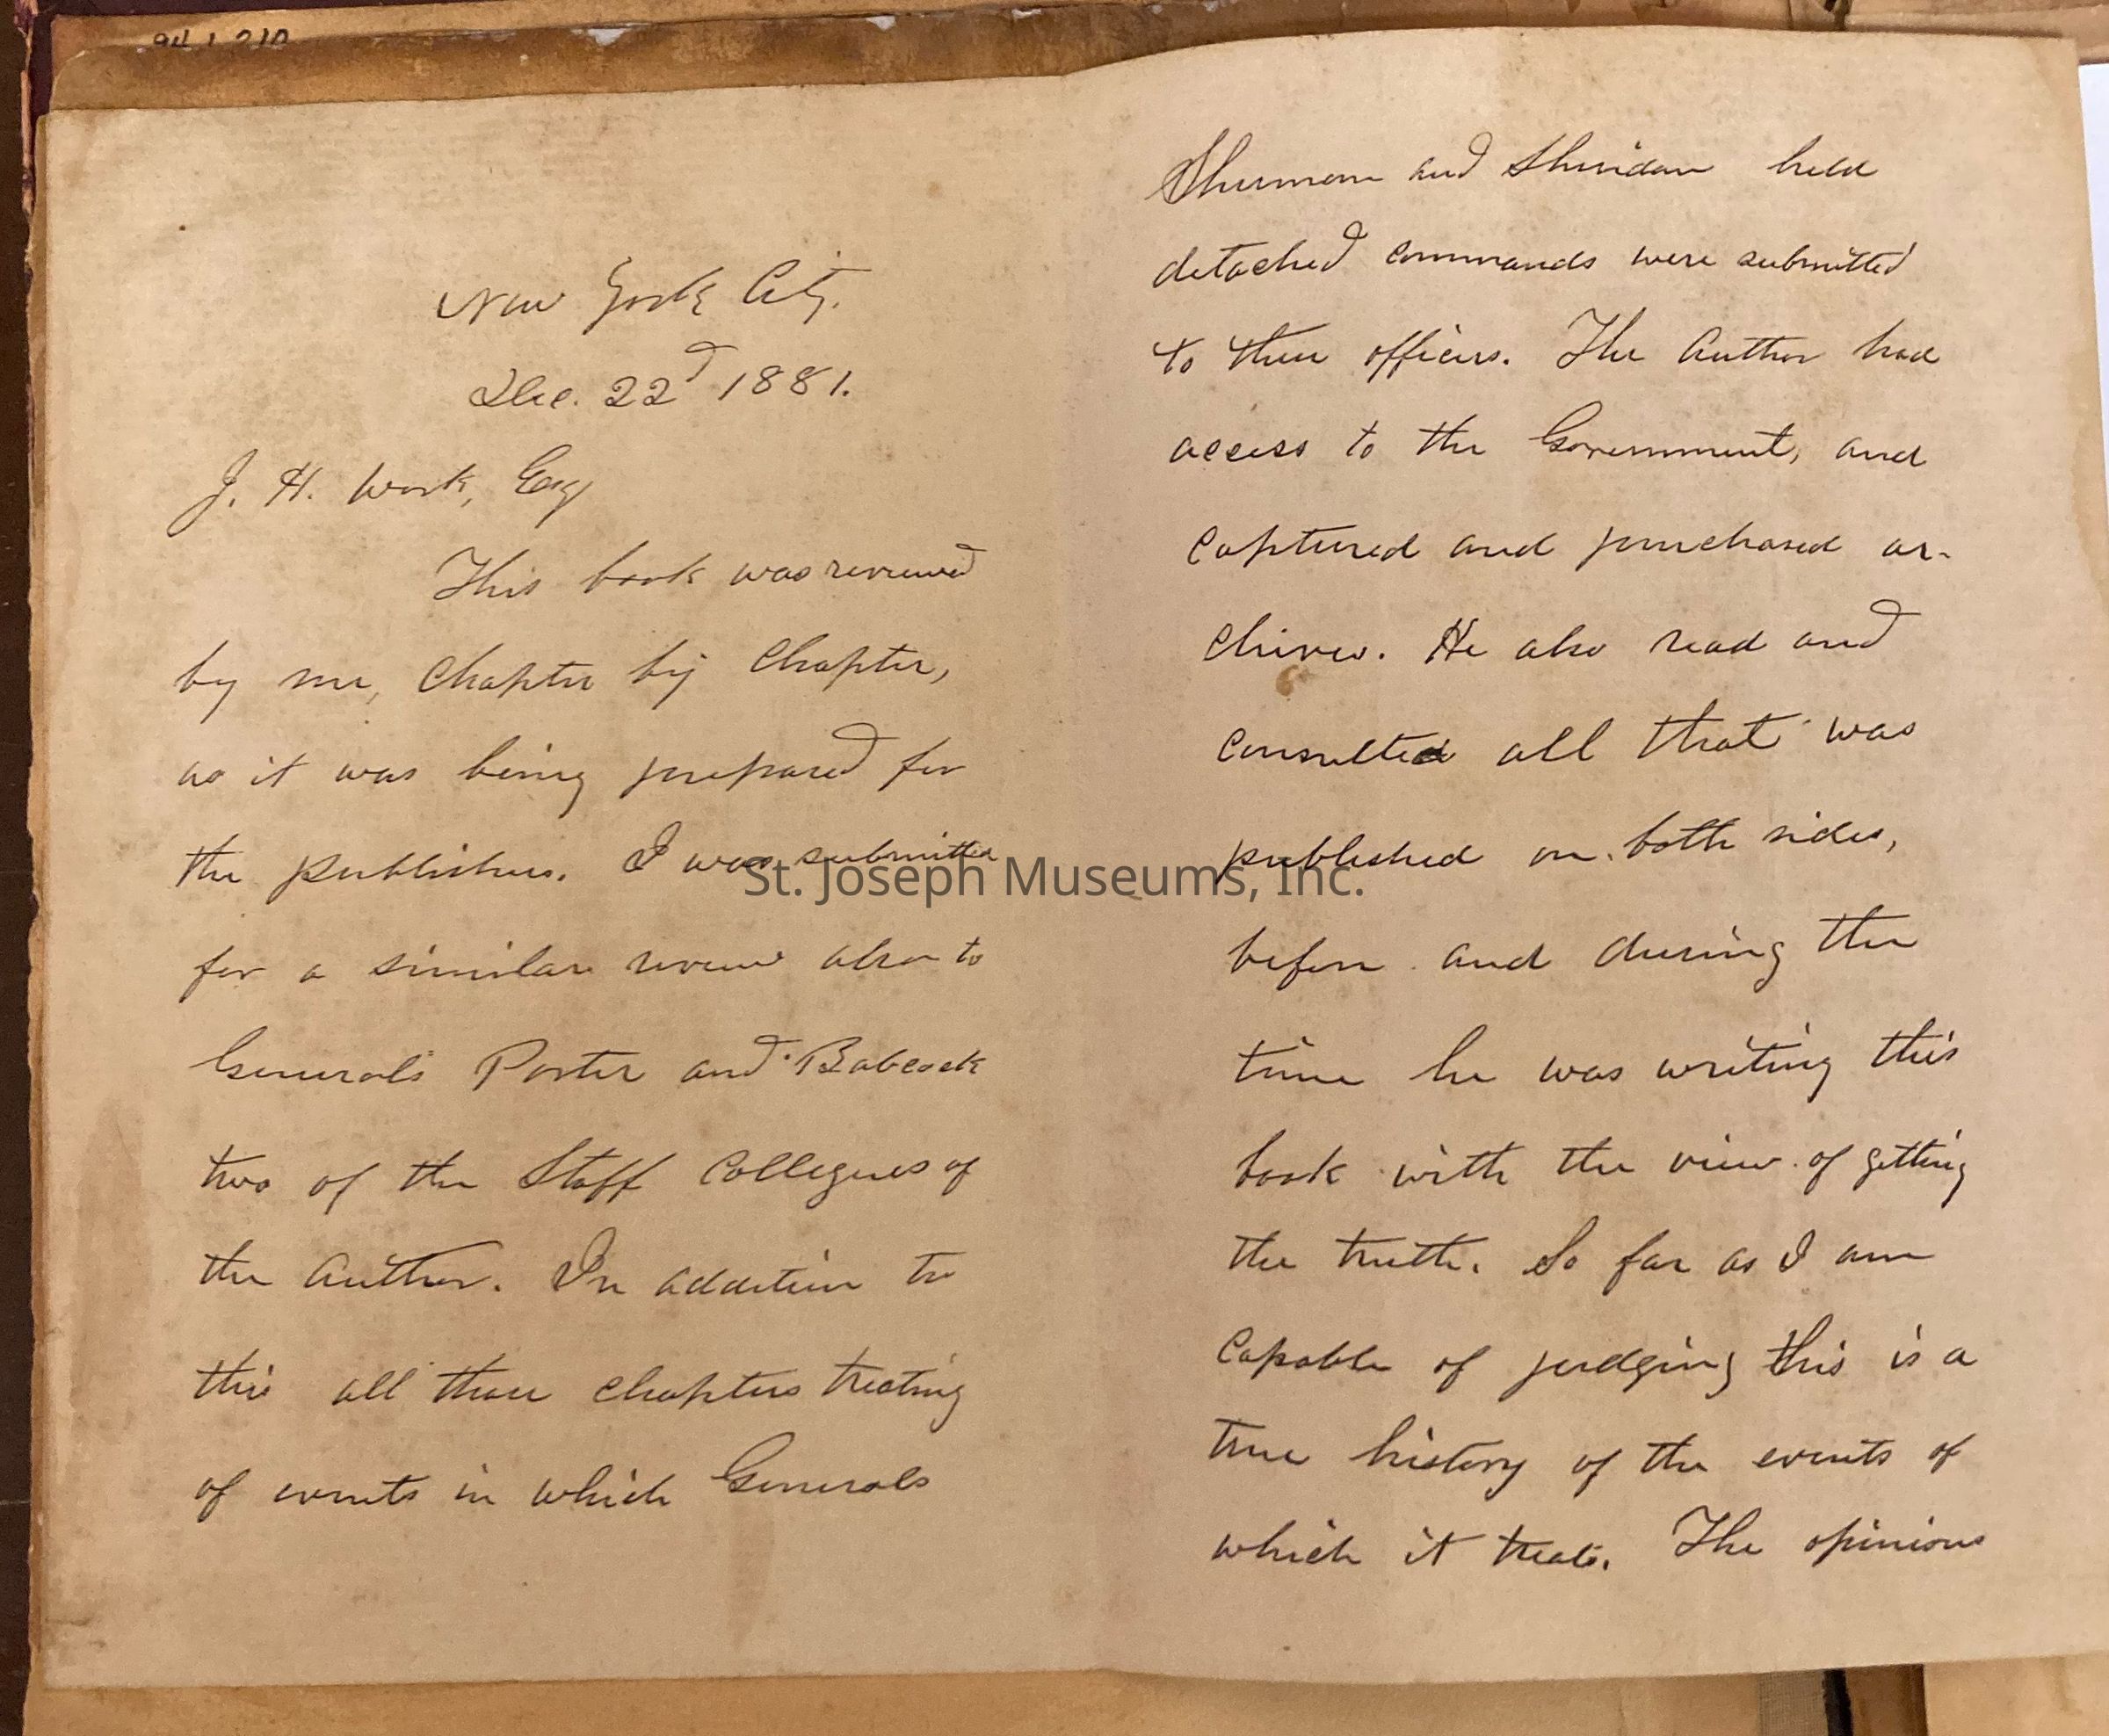 94.1.210
New York City.
Dec. 22d 1881.
J. H. Work, Esq
This book was reviewed
by me, Chapter by Chapter,
as it was being prepared for
the publishers. I was submitted
for a similar review also to
Generals Porter and Babcock
two of the Staff Collegues of
the Author. In addition to
this all those chapters treating
of events in which Generals
Sherman and Sheridan held
detached commands were submitted
to these officers. The Author had
access to the Government, and
Captured and purchased ar-
chives. He also read and
consulted all that was
published on both sides,
before and during the
time he was writing this
book with the view of getting
the truth. So far as I am
Capable of judging this is a
true history of the events of
which it treats. The opinions
St. Joseph Museums, Inc.